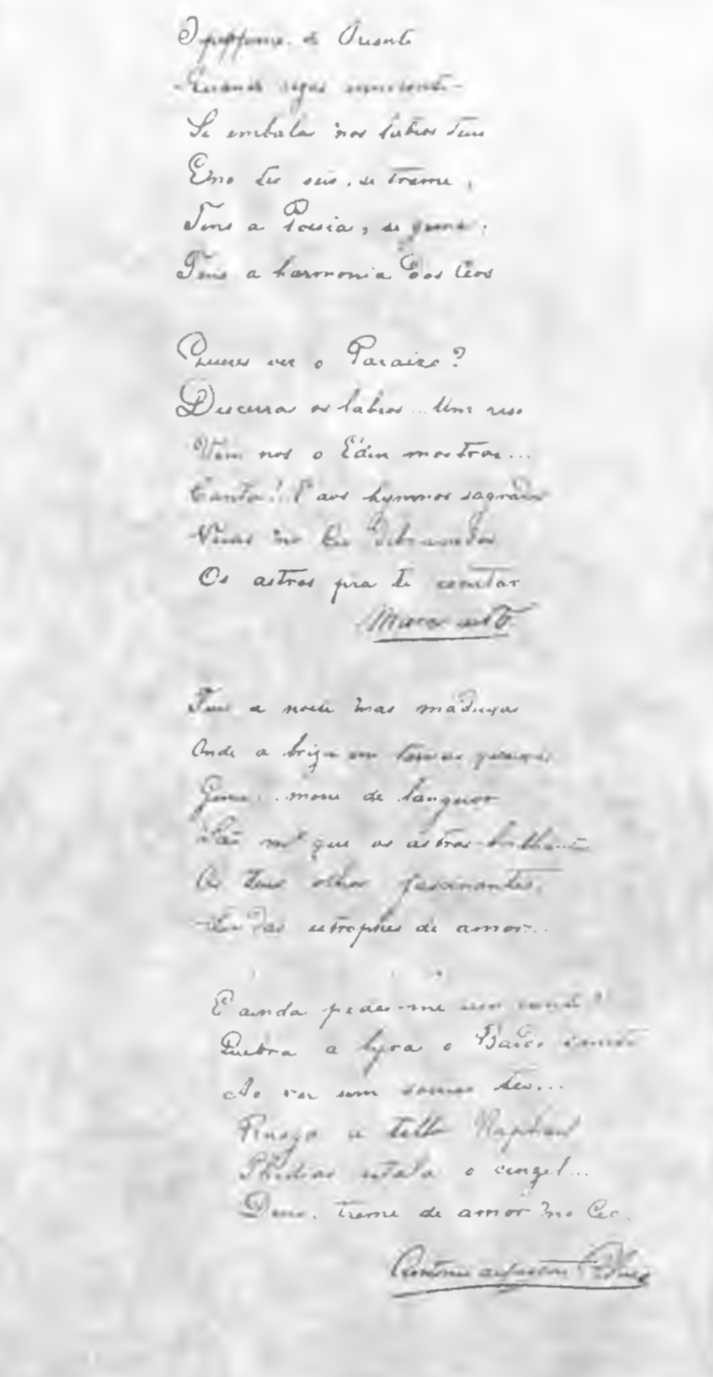 O perfume do Oriente
Quando
Se embala nos labios teus
E no teu seio, se treme,
Tens a Poesia, se geme,
Tens a harmonia dos Ceos
Queres ver o Paraizo?
Descerra os labios... Um riso
Vem nos o Eden mostrar...
Canta!.. E aos hymnos sagrados
no Ceo debruçados
Os astros pra te escutar
Tens a noite nas madeixas
Onde a briza em queixas
Geme... morre de languor
São mais que os astros brilhantes
Os teus olhos fascinantes,
das estrophes de amor...
E ainda pedes-me um canto?
Quebra a lyra o Bardo
Ao ver um sorriso teu...
Rasga a tella Raphael
Phidias estala o cinzel...
Deus, treme de amor no Ceo.